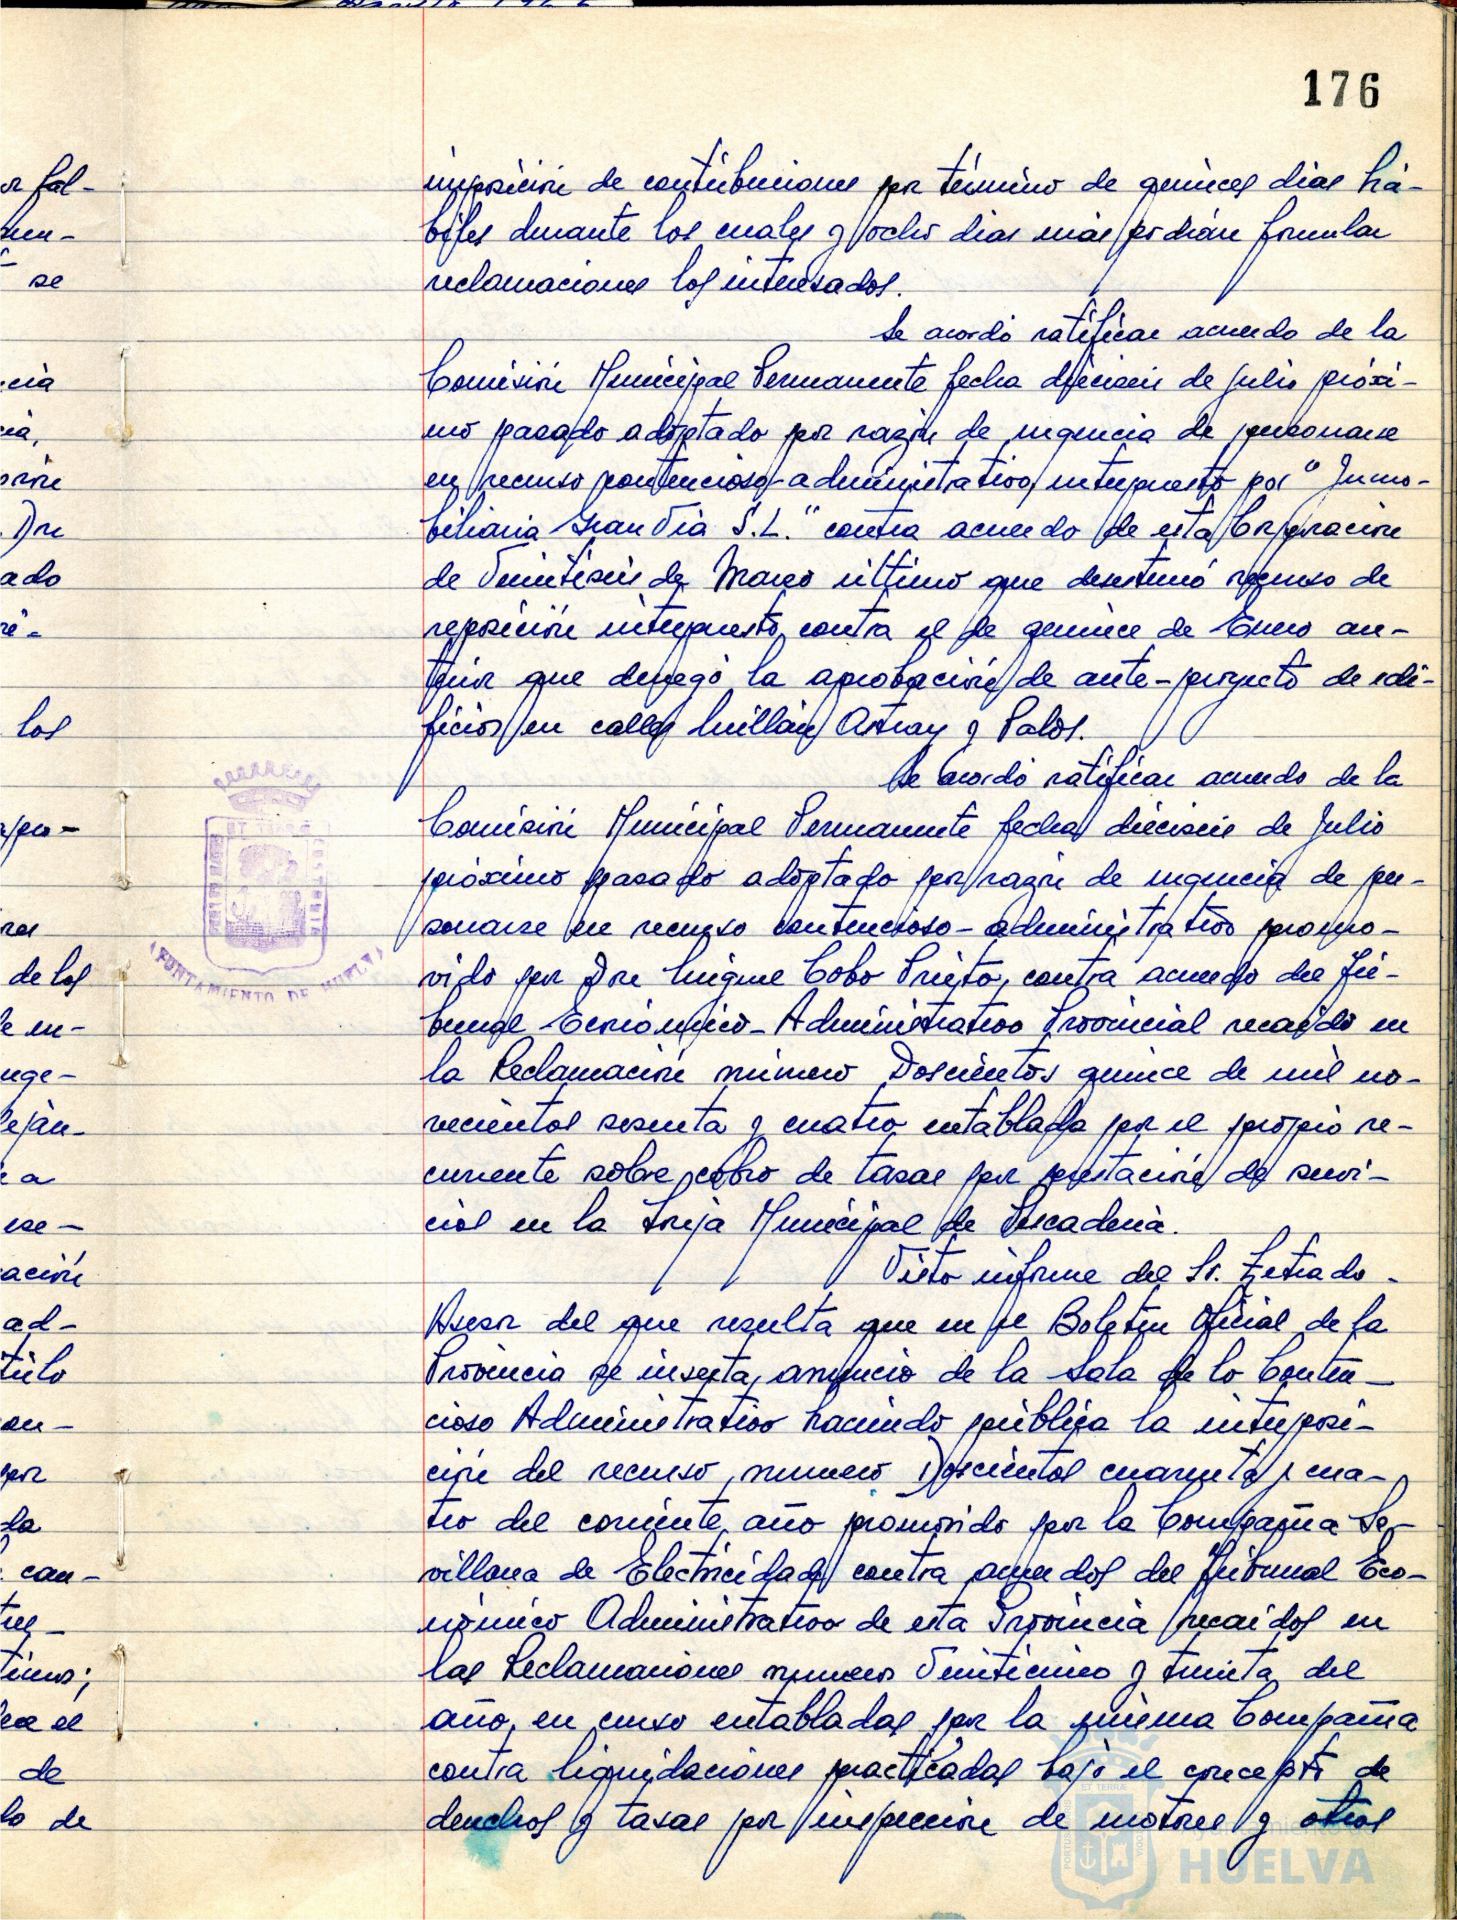 176
imposición de contribuciones por término de quince días há-
biles durante los cuales y ocho días más podrán formular
reclamaciones los interesados.
Se acordó ratificar acuerdo de la
Comisión Municipal Permanente fecha dieciseis de julio próxi-
mo pasado adoptado por razón de urgencia de personarse
en recurso contencioso-administrativo, interpuesto por "Inmo-
biliaria Gran Via S.L." contra acuerdo de esta Corporación
de Veintiseis de Marzo último que desestimó recurso de
reposición interpuesto contra el de quince de Enero an-
terior que denegó la aprobación de ante-proyecto de edi-
ficios en calles Millán Astray y Palos.
Se acordó ratificar acuerdo de la
Comisión Municipal Permanente fecha dieciseis de Julio
próximo pasado adoptado por razón de urgencia de per-
sonarse en recurso contencioso-administrativo promo-
vido por Don Miguel Cobo Prieto, contra acuerdo del Tri-
bunal Económico-Administrativo Provincial recaído en
la Reclamación número Doscientos quince de mil no-
vecientos sesenta y cuatro entablada por el propio re-
currente sobre cobro de tasas por prestación de servi-
cios en la Lonja Municipal de Pescadería.
Visto informe del Sr. Letrado-
Asesor del que resulta que en el Boletín Oficial de la
Provincia se inserta anuncio de la Sala de lo Conten-
cioso Administrativo haciendo pública la interposi-
ción del recurso número Doscientos cuarenta y cua-
tro del corriente año promovido por la Compañía Se-
villana de Electricidad contra acuerdos del Tribunal Eco-
nómico Administrativo de esta Provincia recaídos en
las Reclamaciones número Veinticinco y treinta del
año en curso entabladas por la misma Compañía
contra liquidaciones practicadas bajo el concepto de
derechos y tasas por inspección de motores y otros
or fal-
se
cia
cia,
Don
ado
los
de los
a
ación
ad-
por
da
can-
el
de
lo de
AYUNTAMIENTO DE HUELVA
ET TERRÆ
Ayuntamiento de
HUELVA